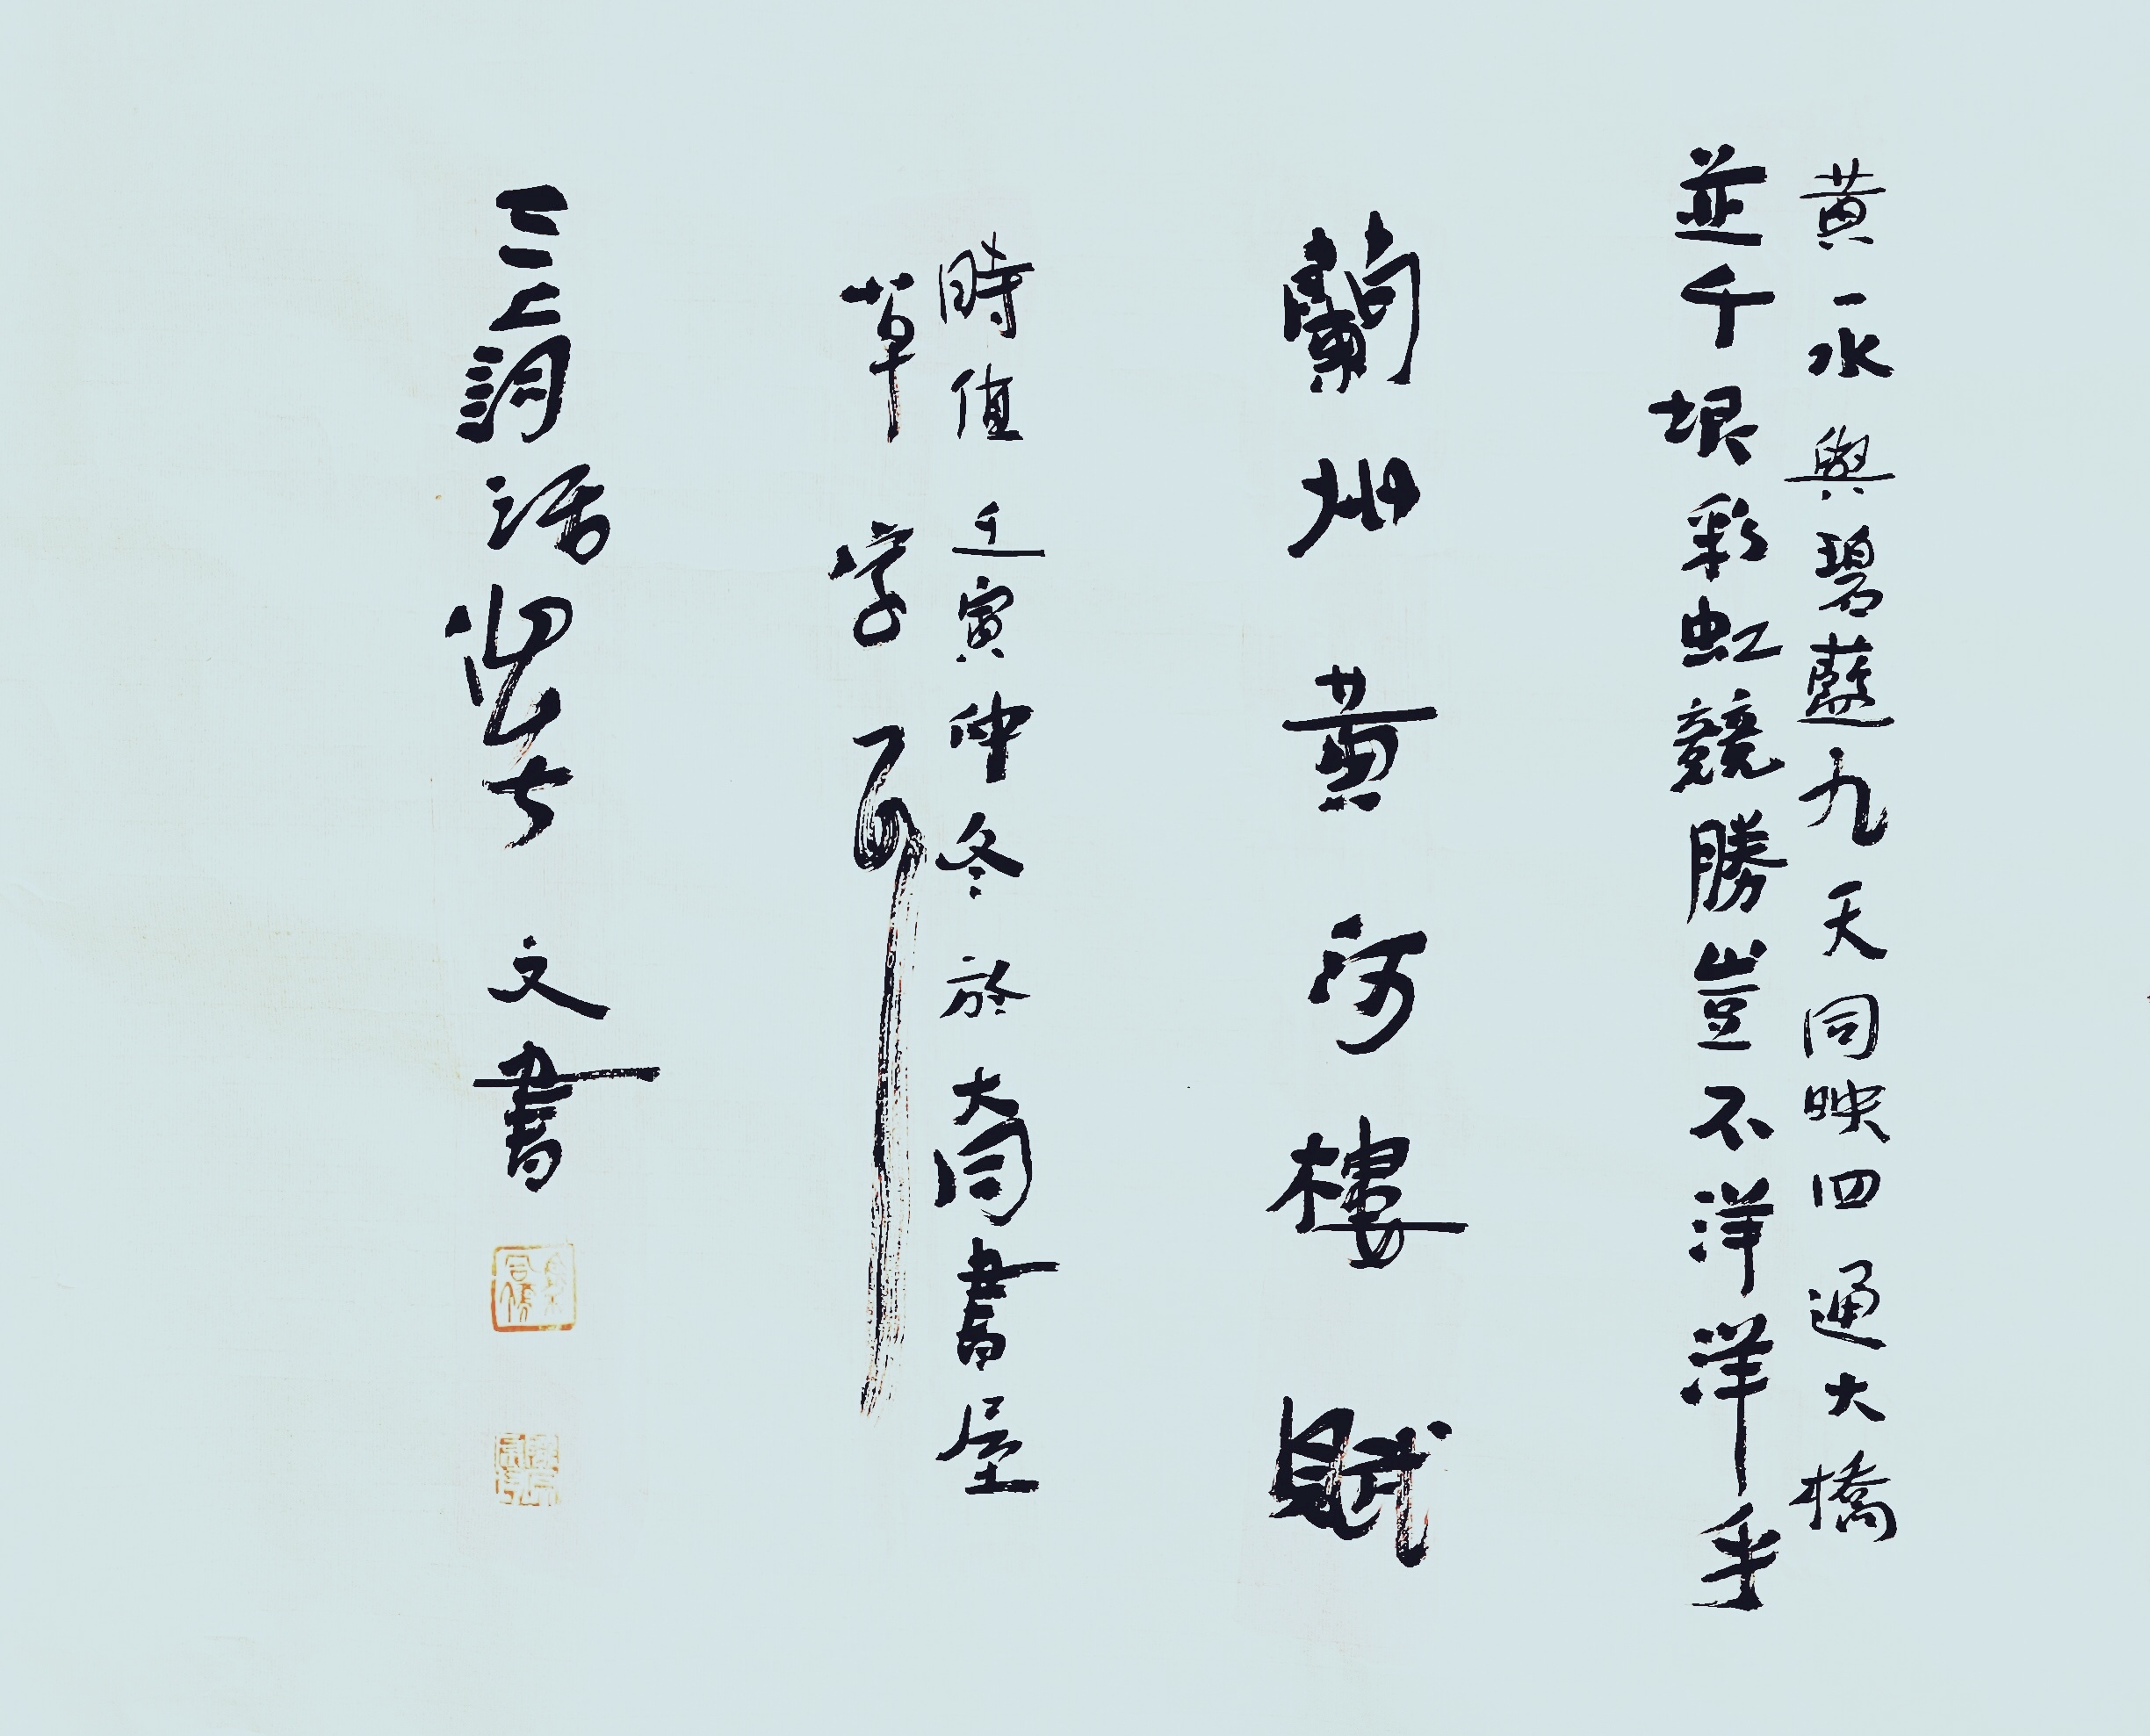 黄一水與碧藍九天同映四通大橋
並千垠彩虹競勝豈不洋洋洋乎
蘭州黄河樓賦
時值壬寅仲冬於大同書屋
草字
三上詞話
文書